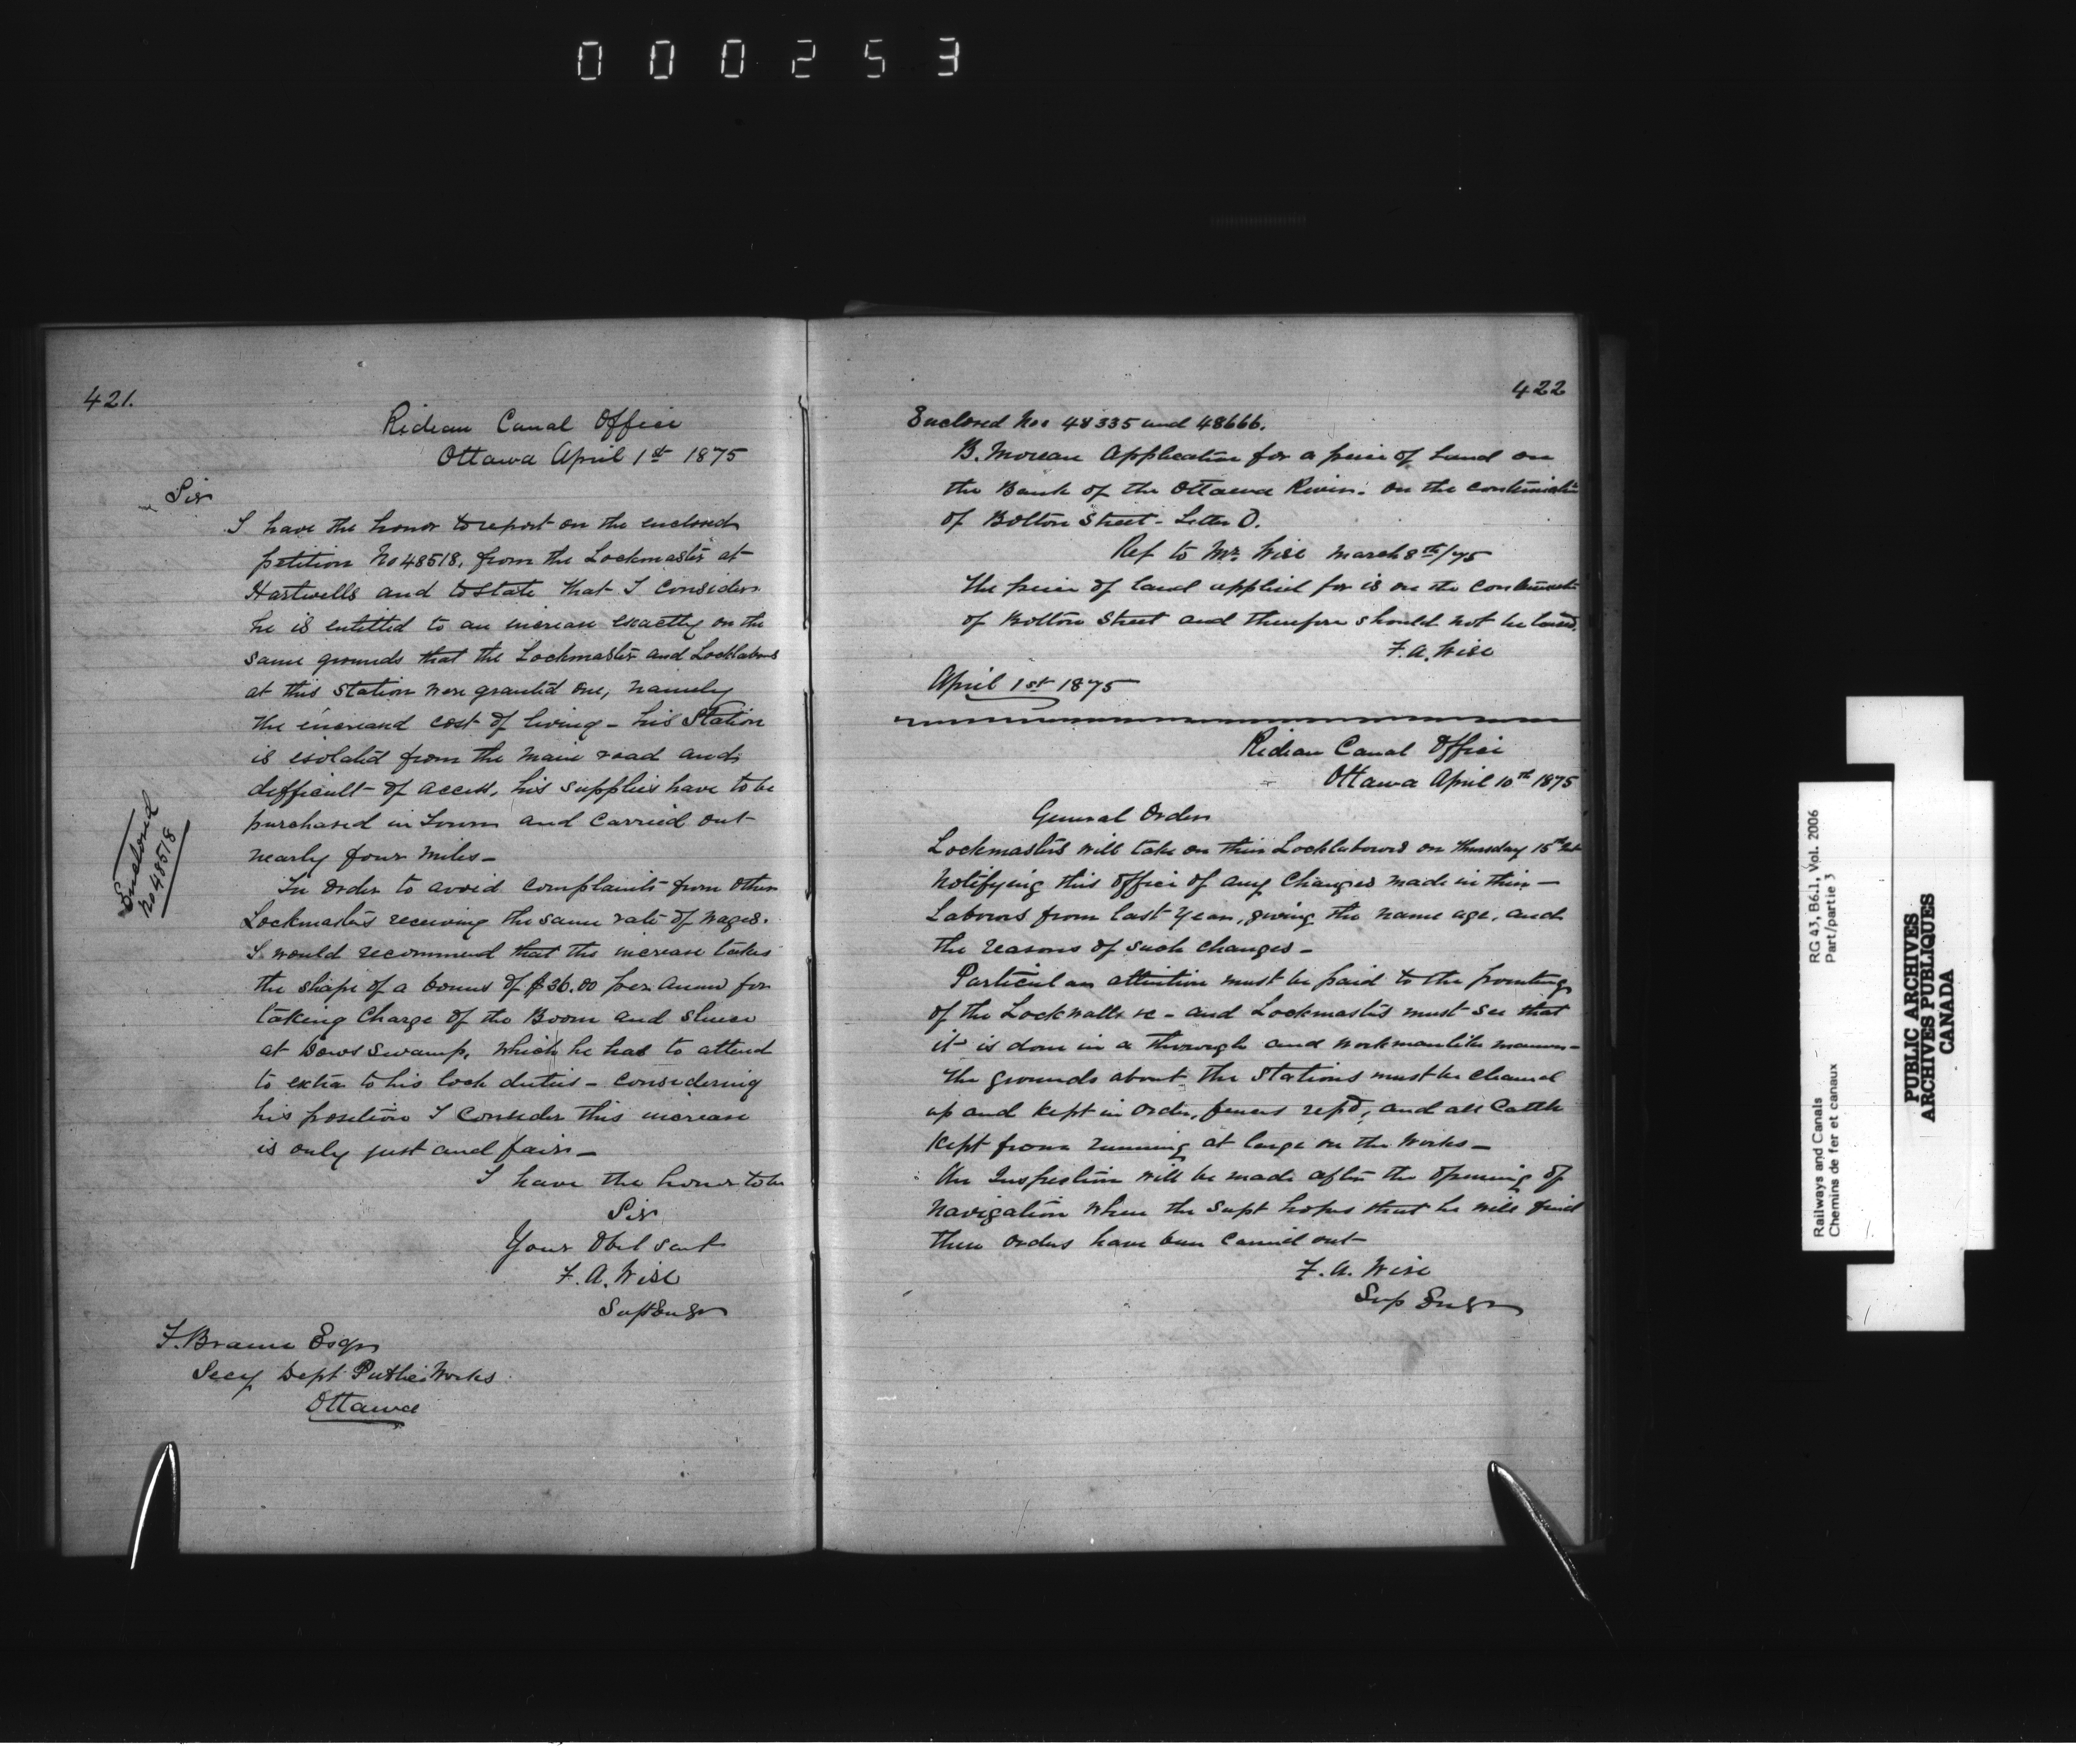 000253
421.
Rideau Canal Office
Ottawa April 1st 1875
Sir
I have the honor to report on the enclosed
petition No 48518, from the Lockmaster at
Hartwells and to state that I consider
he is entitled to an increase exactly on the
same grounds that the Lockmaster and Locklabors
at this Station were granted one, namely
the increased cost of living - his Station
is isolated from the main road and
difficult of access, his supplies have to be
purchased in Town and carried out
nearly four miles -
Enclosed
No 48518
In order to avoid complaints from other
Lockmasters receiving the same rate of wages.
I would recommend that the increase takes
the shape of a bonus of $36.00 per annum for
taking charge of the Boom and sluice
at Dows Swamp, which he has to attend
to extra to his lock duties - considering
his position I consider this increase
is only just and fair -
I have the honor to be
Sir
Your Obet servt
F. A. Wise
Supt Engr
F. Braun Esqr
Secy Dept Public Works
Ottawa
422
Enclosed Nos 48335 and 48666.
B. Moreau Application for a piece of Land on
the Bank of the Ottawa River. on the continuatn
of Bolton Street - Letter O.
Ref to Mr. Wise March 8th/75
The piece of land applied for is on the continuatn
of Bolton Street and therefore should not be leased.
F. A. Wise
April 1st 1875
Rideau Canal Office
Ottawa April 10th 1875
General Order
Lockmasters will take on their Locklaborers on Thursday 15th Inst
notifying this office of any changes made in their
Laborers from last year, giving the name age, and
the reasons of such changes -
Particular attention must be paid to the pointing
of the Lock walls &c - and Lockmasters must see that
it is done in a thorough and workmanlike manner -
The grounds about the Stations must be cleaned
up and kept in order, fences repd, and all Cattle
kept from running at large on the Works -
An Inspection will be made after the opening of
Navigation when the Supt hopes that he will find
these orders have been carried out
F. A. Wise
Sup Engr
RG 43, B6.1, Vol. 2006
Part/partie 3
Railways and Canals
Chemins de fer et canaux
PUBLIC ARCHIVES
ARCHIVES PUBLIQUES
CANADA